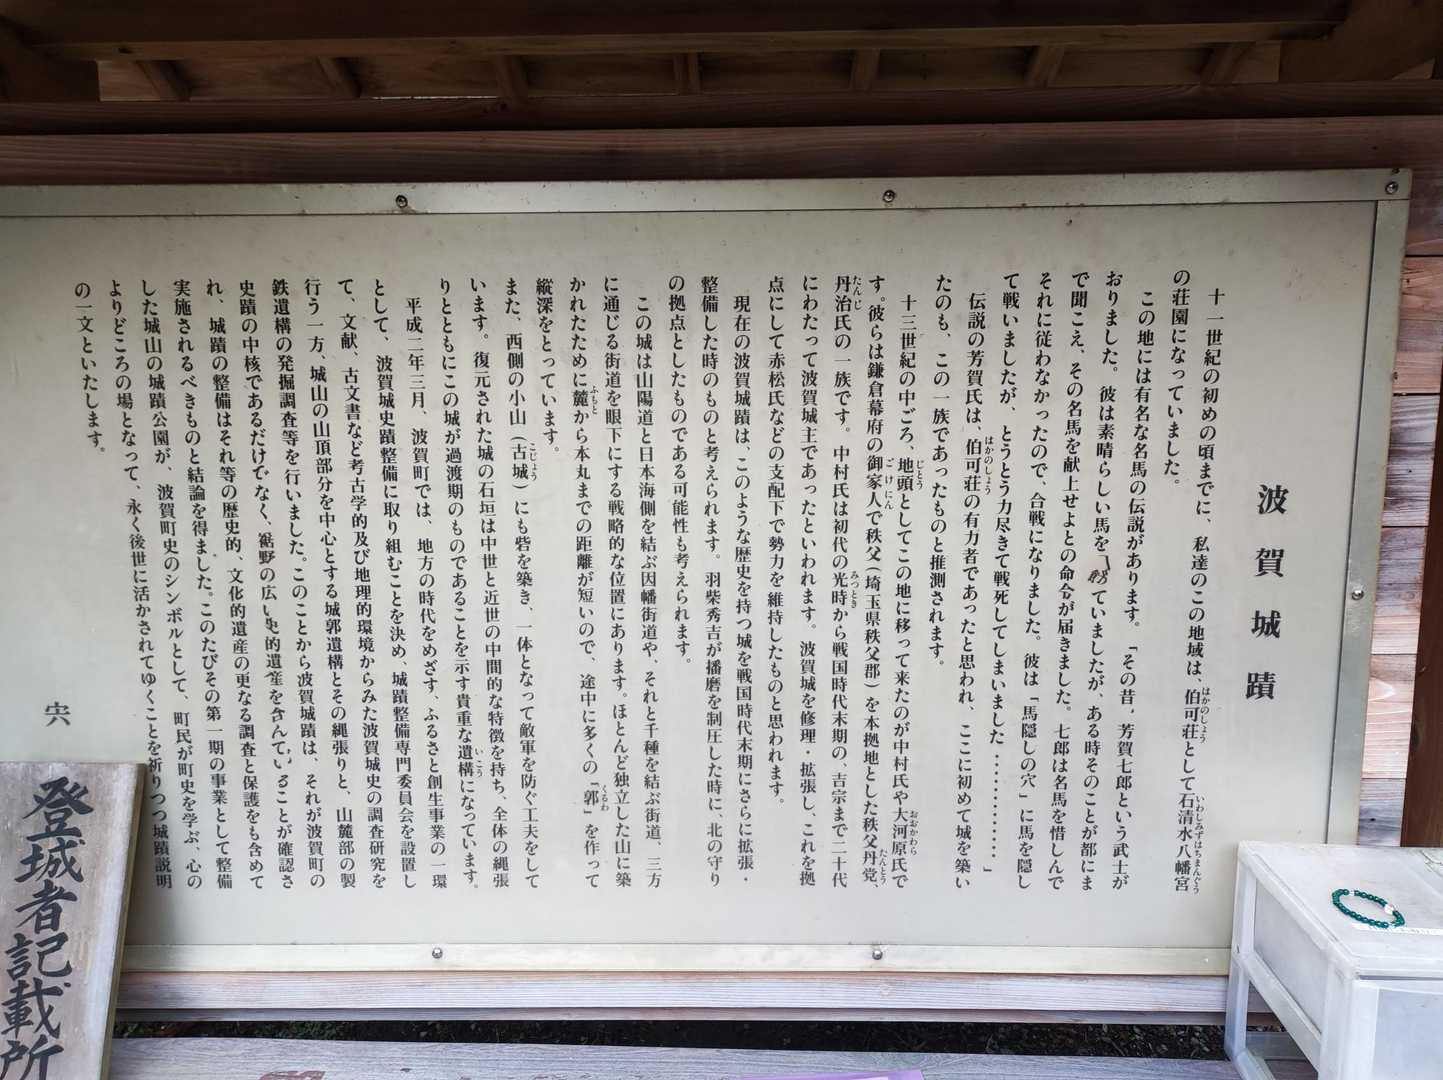 波賀城蹟
十一世紀の初めの頃までに、私達のこの地域は、伯可荘として石清水八幡宮
の荘園になっていました。
この地には有名な名馬の伝説があります。「その昔，芳賀七郎という武士が
おりました。彼は素晴らしい馬を っていましたが、ある時そのことが都にま
で聞こえ、その名馬を献上せよとの命令が届きました。七郎は名馬を惜しんで
それに従わなかったので、合戦になりました。彼は「馬隠しの穴」に馬を隠し
て戦いましたが、とうとう力尽きて戦死してしまいました…………」
伝説の芳賀氏は、伯可荘の有力者であったと思われ、ここに初めて城を築い
たのも、この一族であったものと推測されます。
十三世紀の中ごろ、地頭としてこの地に移って来たのが中村氏や大河原氏で
す。彼らは鎌倉幕府の御家人で秩父（埼玉県秩父郡）を本拠地とした秩父丹党、
丹治氏の一族です。中村氏は初代の光時から戦国時代末期の、吉宗まで二十代
にわたって波賀城主であったといわれます。波賀城を修理・拡張し、これを拠
点にして赤松氏などの支配下で勢力を維持したものと思われます。
現在の波賀城蹟は、このような歴史を持つ城を戦国時代末期にさらに拡張・
整備した時のものと考えられます。羽柴秀吉が播磨を制圧した時に、北の守り
の拠点としたものである可能性も考えられます。
この城は山陽道と日本海側を結ぶ因幡街道や、それと千種を結ぶ街道、三方
に通じる街道を眼下にする戦略的な位置にあります。ほとんど独立した山に築
かれたために麓から本丸までの距離が短いので、途中に多くの「郭」を作って
縦深をとっています。
また、西側の小山（古城）にも砦を築き、一体となって敵軍を防ぐ工夫をして
います。復元された城の石垣は中世と近世の中間的な特徴を持ち、全体の縄張
りとともにこの城が過渡期のものであることを示す貴重な遺構になっています。
平成二年三月、波賀町では、地方の時代をめざす、ふるさと創生事業の一環
として、波賀城史蹟整備に取り組むことを決め、城蹟整備専門委員会を設置し
て、文献、古文書など考古学的及び地理的環境からみた波賀城史の調査研究を
行う一方、城山の山頂部分を中心とする城郭遺構とその縄張りと、山麓部の製
鉄遺構の発掘調査等を行いました。このことから波賀城蹟は、それが波賀町の
史蹟の中核であるだけでなく、裾野の広い史的遺産を含んでいることが確認さ
れ、城蹟の整備はそれ等の歴史的、文化的遺産の更なる調査と保護をも含めて
実施されるべきものと結論を得ました。このたびその第一期の事業として整備
した城山の城蹟公園が、波賀町史のシンボルとして、町民が町史を学ぶ、心の
よりどころの場となって、永く後世に活かされてゆくことを祈りつつ城蹟説明
の一文といたします。
登城者記載所